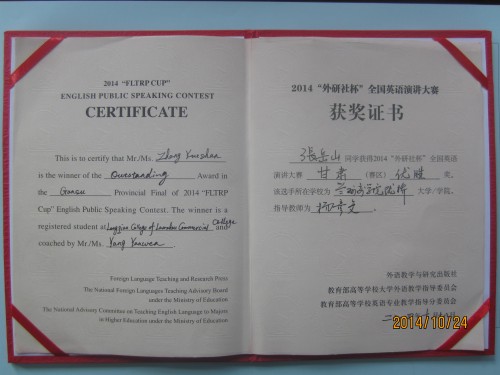 2014 "FLTRP CUP"
ENGLISH PUBLIC SPEAKING CONTEST
CERTIFICATE
This is to certify that Mr./Ms.
is the winner of the Award in
the Gansu Provincial Final of 2014 "FLTRP
Cup" English Public Speaking Contest. The winner is a
registered student at College of Lanzhou Commercial College and
coached by Mr./Ms. Yang Yanwen
Foreign Language Teaching and Research Press
The National Foreign Languages Teaching Advisory Board
under the Ministry of Education
The National Advisory Committee on Teaching English to Majors
in Higher Education under the Ministry of Education
2014 "外研社杯" 全国英语演讲大赛
获奖证书
張岳山 同学获得2014 "外研社杯" 全国英语
演讲大赛 甘肃 (赛区) 优胜 奖。
该选手所在学校为 大学/学院。
指导教师为
外语教学与研究出版社
教育部高等学校大学外语教学指导委员会
教育部高等学校英语专业教学指导分委员会
2014/10/24